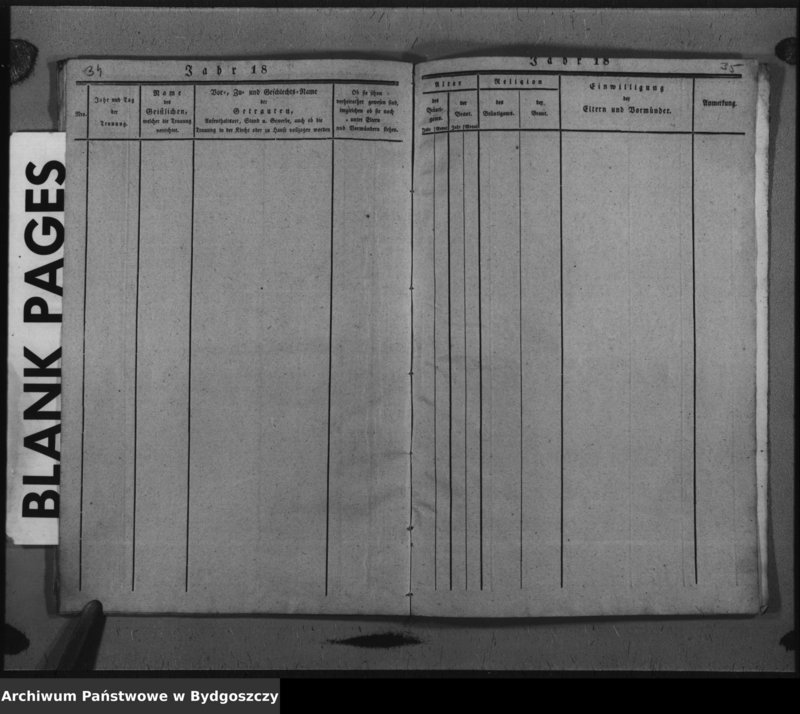 34
Jahr 18
Nro.
Jahr und Tag
der
Trauung.
Name
des
Geistlichen,
welcher die Trauung
verrichtet.
Vor-, Zu- und Geschlechts-Name
der
Getrauten,
Aufenthaltsort, Stand u. Gewerbe, auch ob die
Trauung in der Kirche oder zu Hause vollzogen worden
Ob sie schon
verheirathet gewesen sind,
imgleichen ob sie noch
unter Eltern
und Vormündern stehen.
Jahr 18
35
Alter
des
Bräuti-
gams.
der
Braut.
Jahr
Monat
Jahr
Monat
Religion
des
Bräutigams.
der
Braut.
Einwilligung
der
Eltern und Vormünder.
Anmerkung.
BLANK PAGES
Archiwum Państwowe w Bydgoszczy